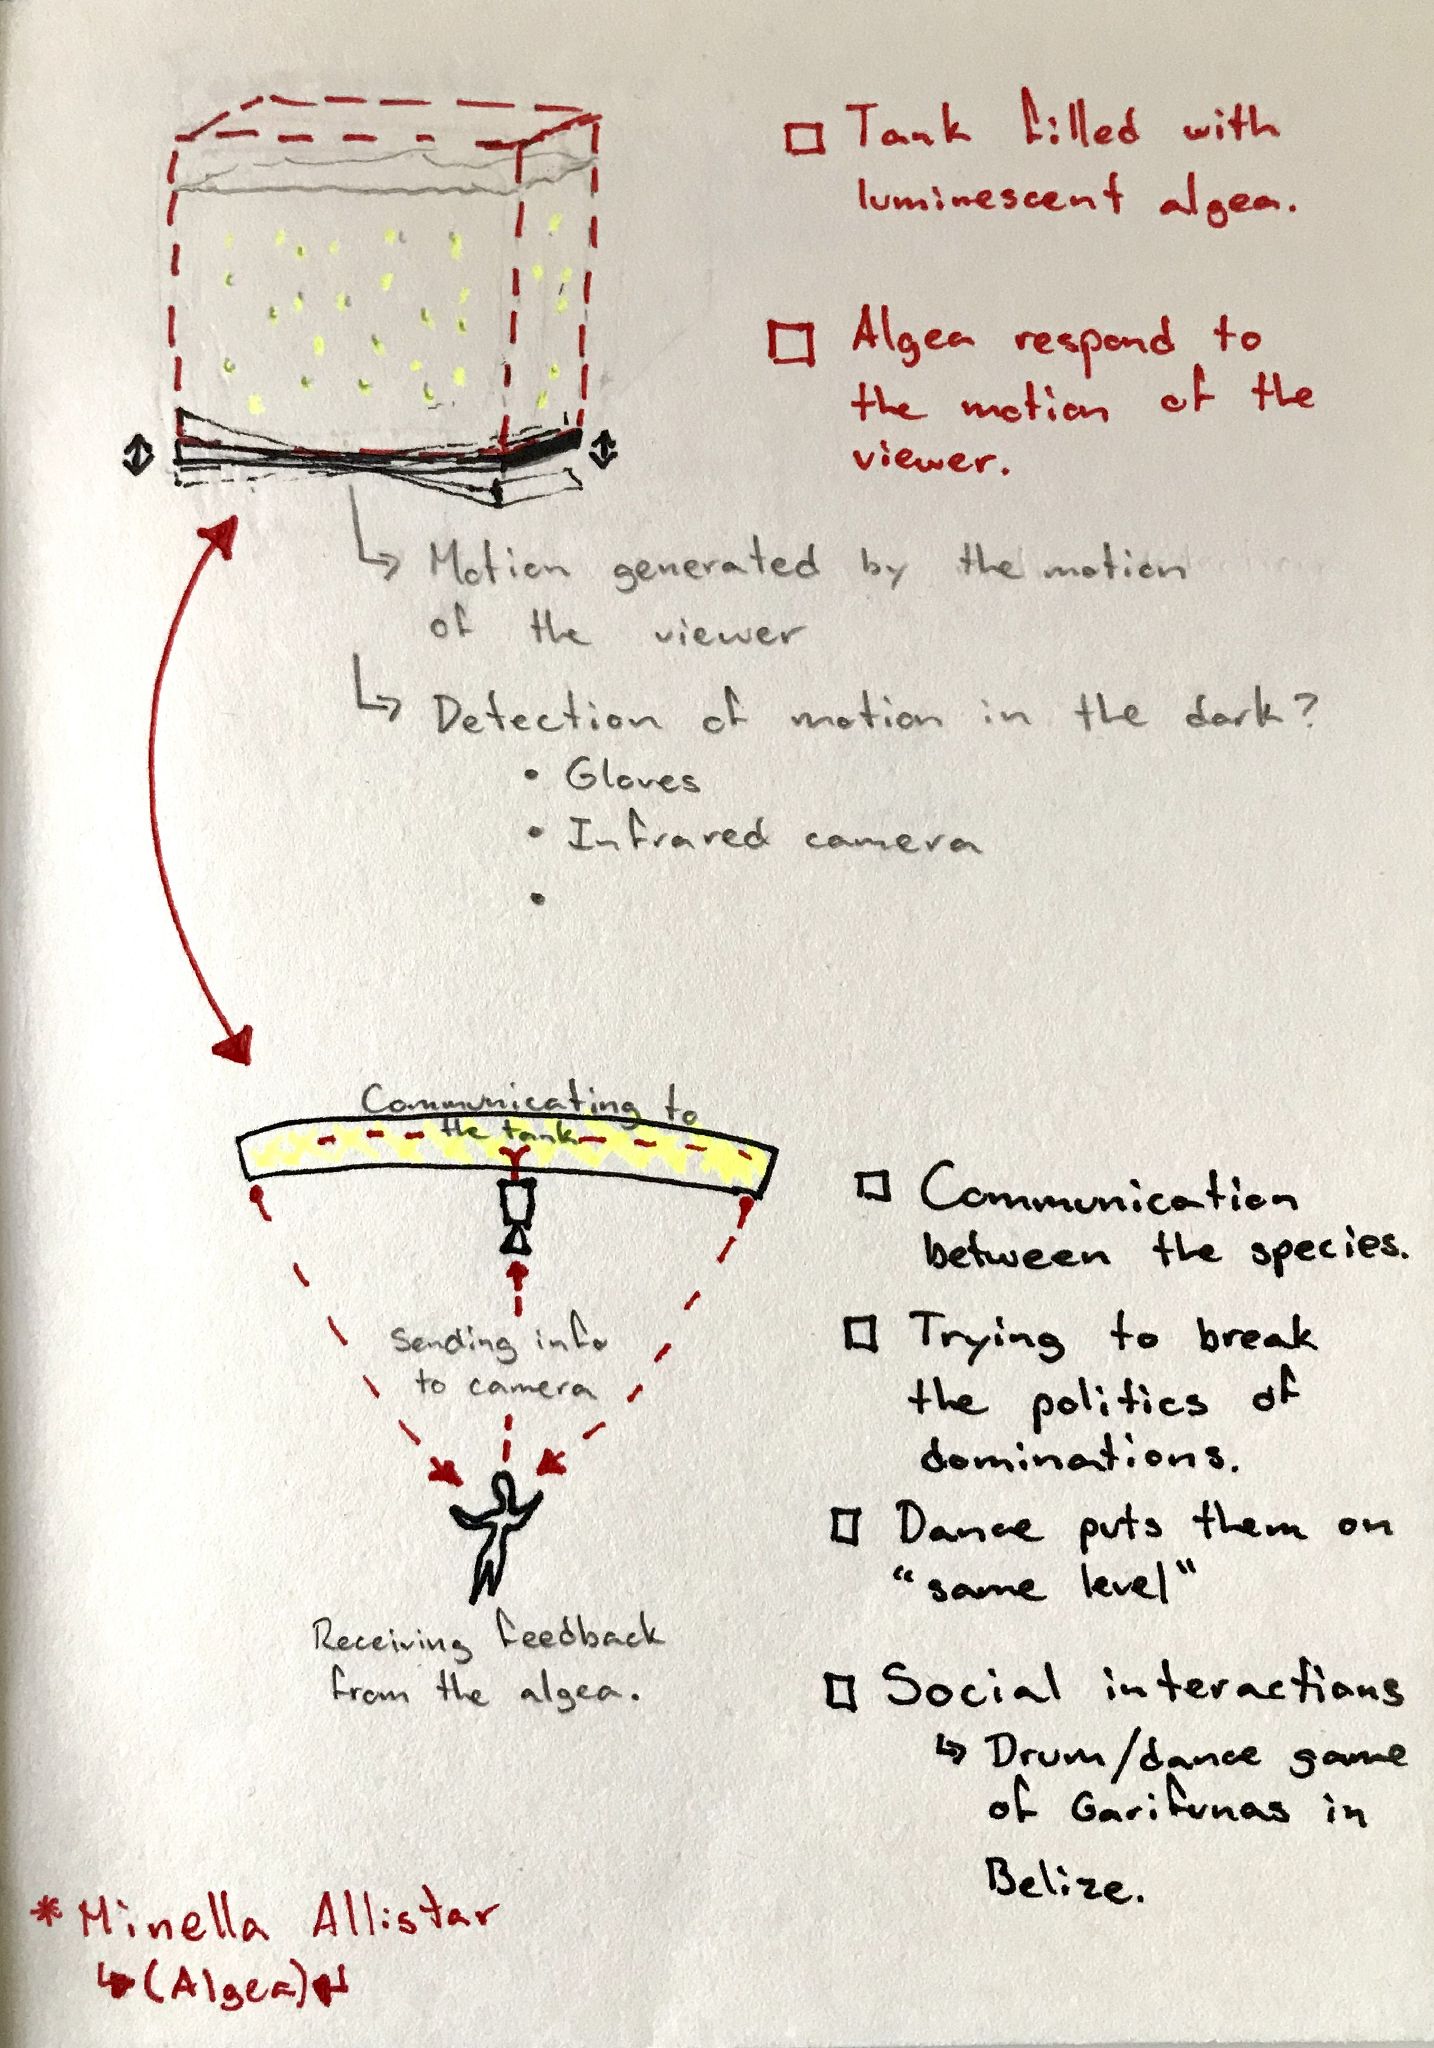 Tank filled with
luminescent algea.
Algea respond to
the motion of the
viewer.
Motion generated by the motion
of the viewer
Detection of motion in the dark?
• Gloves
• Infrared camera
•
Communicating to
the tank
Sending info
to camera
Receiving feedback
from the algea.
Communication
between the species.
Trying to break
the politics of
dominations.
Dance puts them on
"same level"
Social interactions
↳ Drum/dance game
of Garifunas in
Belize.
* Minella Allistar
↳(Algea)↲